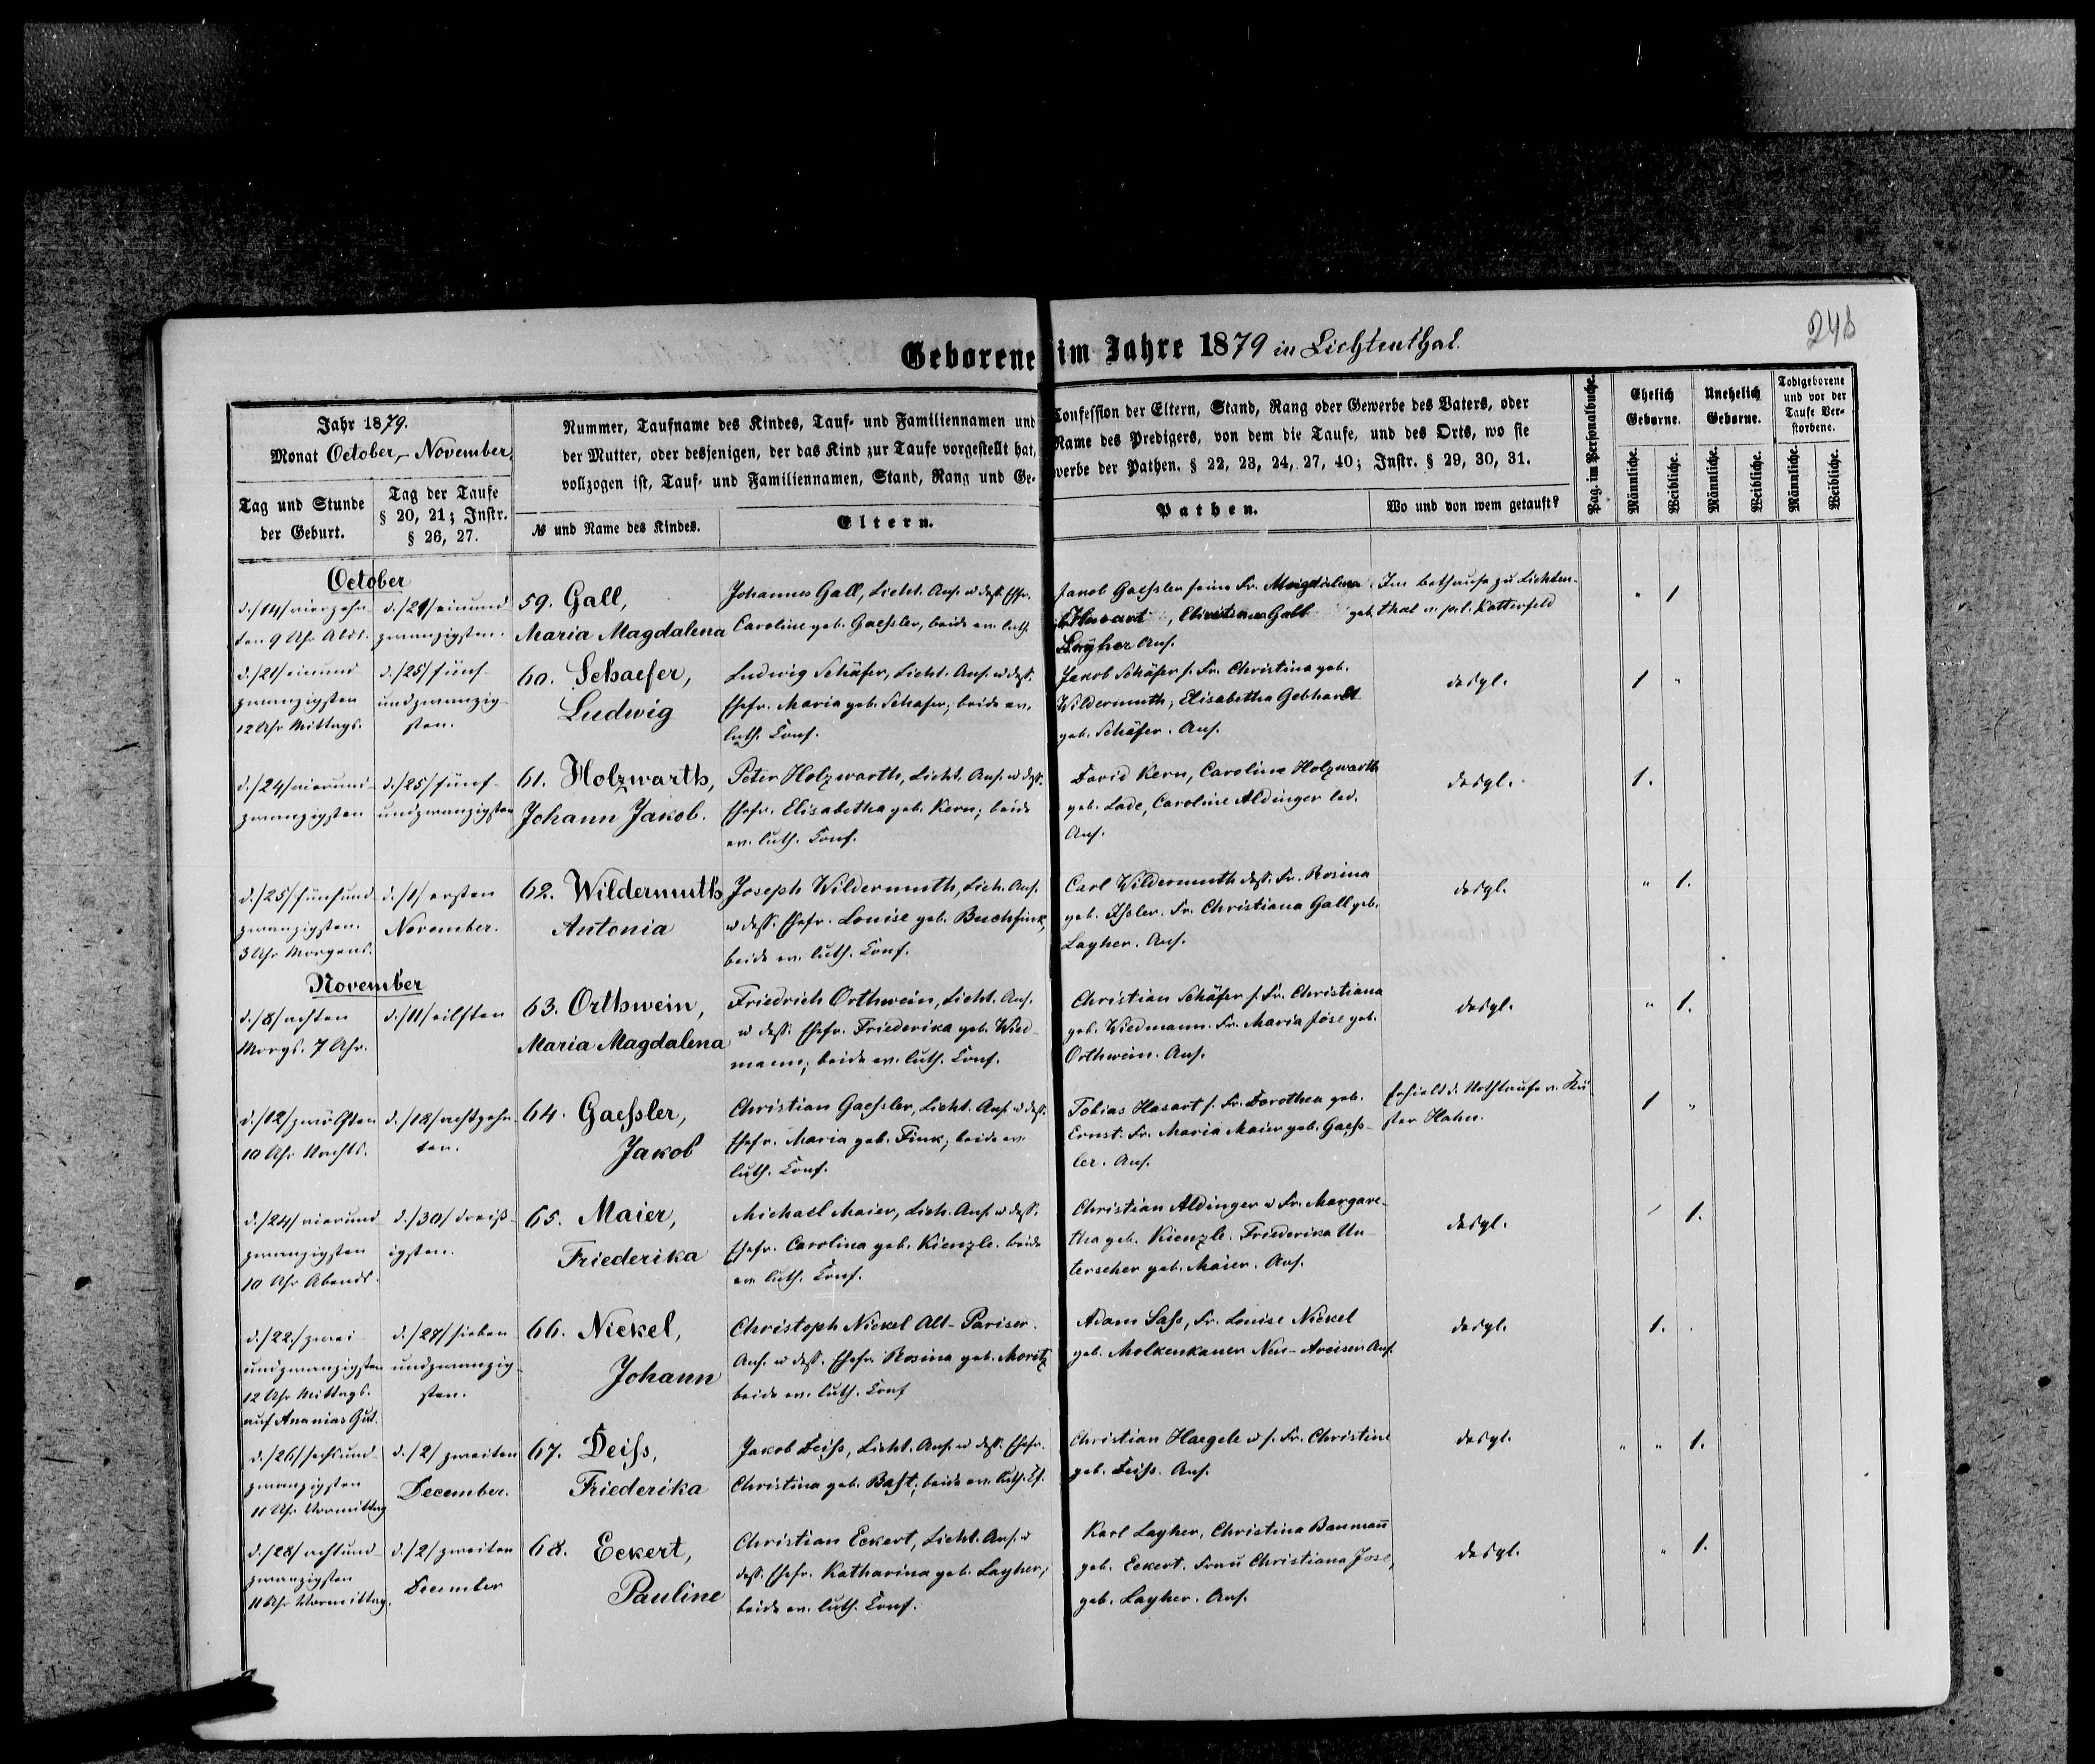 248
Geborene im Jahre 1879 in Lichtenthal.
Jahr 1879.
Monat October, - November,
Tag und Stunde
der Geburt.
Tag der Taufe
§ 20, 21; Instr.
§ 26, 27.
Nummer, Taufname des Kindes, Tauf- und Familiennamen und Confession der Eltern, Stand, Rang oder Gewerbe des Vaters, oder
der Mutter, oder desjenigen, der das Kind zur Taufe vorgestellt hat, Name des Predigers, von dem die Taufe, und des Orts, wo sie
vollzogen ist, Tauf- und Familiennamen, Stand, Rang und Gewerbe der Pathen. § 22, 23, 24, 27, 40; Instr. § 29, 30, 31.
№ und Name des Kindes.
Eltern.
Pathen.
Wo und von wem getauft?
Pag. im Personalbuche.
Ehelich
Geborne.
Unehelich
Geborne.
Todtgeborene
und vor der
Taufe Ver-
storbene.
Männliche.
Weibliche.
Männliche.
Weibliche.
Männliche.
Weibliche.
October
d. /14/ vierzehn-
ten 9 Uhr Abds.
d. /21/ einund
zwanzigsten.
59. Gall,
Maria Magdalena
Johannes Gall, Licht. Ans. u dess. Ehfr.
Caroline geb. Gaessler, beide ev. luth.
Jakob Gaessler seine Fr. Magdalena
, Christiana Gall geb.
Layher Ans.
Im Bethause zu Lichten-
thal v. pst. Katterfeld
" 1
d. /21/ einund
zwanzigsten
12 Uhr Mittags.
d. /25/ fünf-
undzwanzig-
sten.
60. Schaefer,
Ludwig
Ludwig Schäfer, Licht. Ans. u dess.
Ehefr. Maria geb. Schafer; beide ev.
luth. Conf.
Jakob Schäfer s. Fr. Christina geb.
Wildermuth, Elisabetha Gebhardt
geb. Schäfer. Ans.
desgl.
1 "
d. /24/ vierund-
zwanzigsten
d. /25/ fünf-
undzwanzigsten
61. Holzwarth,
Johann Jakob.
Peter Holzwarth, Licht. Ans. u dess.
Ehefr. Elisabetha geb. Kern; beide
ev. luth. Conf.
David Kern, Carolina Holzwarth
geb. Lade, Caroline Aldinger led.
Ans.
desgl.
1.
d. /25/ fünfund
zwanzigsten.
3 Uhr Morgens.
d. /1/ ersten
November.
62. Wildermuth
Antonia
Joseph Wildermuth, Lich. Ans.
u dess. Ehefr. Louise geb. Buchfink,
beide ev. luth. Conf.
Carl Wildermuth dess. Fr. Rosina
geb. Issler. Fr. Christiana Gall geb.
Layher. Ans.
desgl.
" 1.
November
d. /8/ achten
Morgs. 7 Uhr.
d. /11/ eilften
63. Orthwein,
Maria Magdalena
Friedrich Orthwein, Licht. Ans.
u dess. Ehefr. Friederika geb. Wied-
mann; beide ev. luth. Conf.
Christian Schäfer s. Fr. Christiana
geb. Wiedmann. Fr. Maria Jose geb.
Orthwein. Ans.
desgl.
" 1.
d. /12/ zwölften
10 Uhr Nachts.
d. /18/ achtzehn-
ten.
64. Gaessler,
Jakob
Christian Gaessler, Licht. Ans. u dess.
Ehefr. Maria geb. Fink; beide ev.
luth. Conf.
Tobias Hasart s. Fr. Dorothea geb.
Ernst. Fr. Maria Maier geb. Gaess-
ler. Ans.
Erhielt d. Nothtaufe v. Kü-
ster Hahn.
1 "
d. /24/ vierund-
zwanzigsten
10 Uhr Abends.
d. /30/ dreiss-
igsten.
65. Maier,
Friederika
Michael Maier, Lich. Ans. u dess.
Ehefr. Carolina geb. Kienzle. beide
ev. luth. Conf.
Christian Aldinger u Fr. Margare-
tha geb. Kienzle. Friederika Un-
terseher geb. Maier. Ans.
desgl.
1.
d. /22./ zwei-
undzwanzigsten
12 Uhr Mittags.
auf Ananias Gut.
d. /27/ sieben
undzwanzig-
sten.
66. Nickel,
Johann
Christoph Nickel Alt-Pariser.
Ans. u dess. Ehefr. Rosina geb. Moritz
beide ev. luth. Conf
Adam Sass, Fr. Louise Nickel
geb. Molkenkauer Neu-Arciser Ans.
desgl.
1. .
d. /26/ sechsund-
zwanzigsten
11 Uhr Vormittag
d. /2/ zweiten
December.
67. Deiss,
Friederika
Jakob Deiss, Licht. Ans. u dess. Ehefr.
Christina geb. Bast; beide ev. luth. Cf.
Christian Haegele u s. Fr. Christine
geb. Deiss. Ans.
desgl.
" " 1.
d. /28/ achtund-
zwanzigsten
11 Uhr Vormittag.
d. /2/ zweiten
December
68. Eckert,
Pauline
Christian Eckert, Licht. Ans. u
dess. Ehefr. Katharina geb. Layher;
beide ev. luth. Conf.
Karl Layher, Christina Baumann
geb. Eckert. Frau Christiana Jose,
geb. Layher. Ans.
desgl.
" 1.